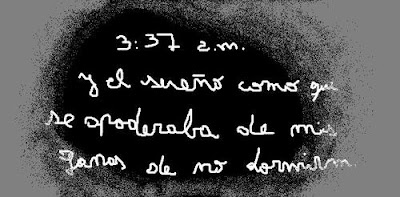 3:37 a.m.
y el sueño como que
se apoderaba de mis
ganas de no dormirm.